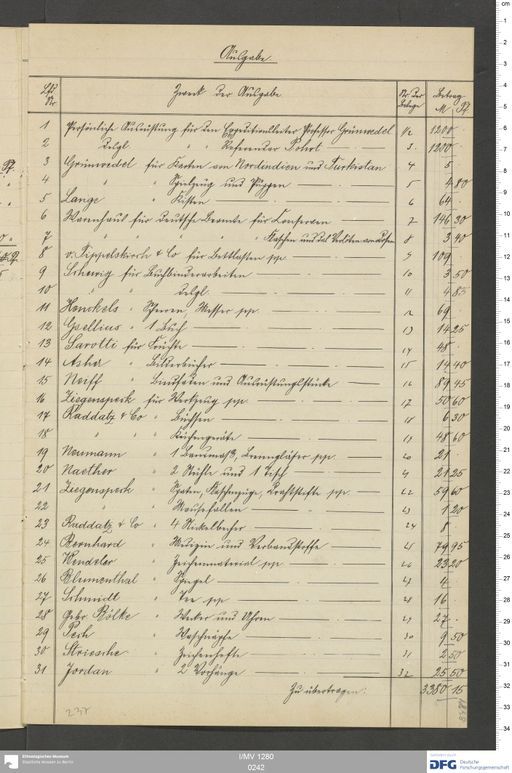 Ausgabe.
Lfd Nr. Zweck der Ausgabe Nr. der Belege Betrag M. Pf
1 Persönliche Ausrüstung für den Expeditionsleiter Professor Grünwedel 1/2 1200
2 Desgl. Referendar Pohrt 3 1200
3 Grünwedel für Karten von Nordindien und Turkestan 4 5
4 " " Spielzeug und Puppen 5 4 80
5 Lange " Kisten 6 64
6 Warenhaus für Deutsche Beamte für Konserven 7 146 30
7 " " " " Kaffee 8 3 40
8 v. Tippelskirch & Co für Bettkasten pp 9 109
9 Scherig für Buchbinderarbeiten 10 3 50
10 Desgl. 11 4 85
11 Henckels " Scheeren, Messer pp. 12 69
12 Gsellius " 1 Buch 13 14 25
13 Sarotti für Früchte 14 48
14 Asher " Bilderbücher 15 14 40
15 Neiff " Bindfaden und Ausrüstungsstücke 16 89 45
16 Ziegenspeck für Werkzeug pp 17 50 60
17 Raddatz & Co " Büchsen 18 6 30
18 " " " Küchengeräte 19 48 60
19 Neumann " 1 Bandmaß, Brenngläser pp. 20 21
20 Naether " 2 Stühle und 1 Tisch 21 25
21 Ziegenspeck " Spaten, Kraftstoffe pp 22 59 60
22 " " Mausefallen 23 1 20
23 Raddatz & Co " 4 Nickelbecher 24 8
24 Bernhard " Medizin und Verbandstoffe 25 79 95
25 " Zeichenmaterial pp 26 23 20
26 Blumenthal " Spiegel 27 4
27 Schmidt " Tee pp 28 16
28 Gebr. Bölke " Wecker und Uhren 29 27
29 Pech " Waschnäpfe 30 9 50
30 Striesche " Zeichenhefte 31 2 50
31 Jordan " 2 Vorhänge 32 25 50
Zu übertragen: 3380 15
Ethnologisches Museum
Staatliche Museen zu Berlin
I/MV 1280
0242
DFG Deutsche Forschungsgemeinschaft